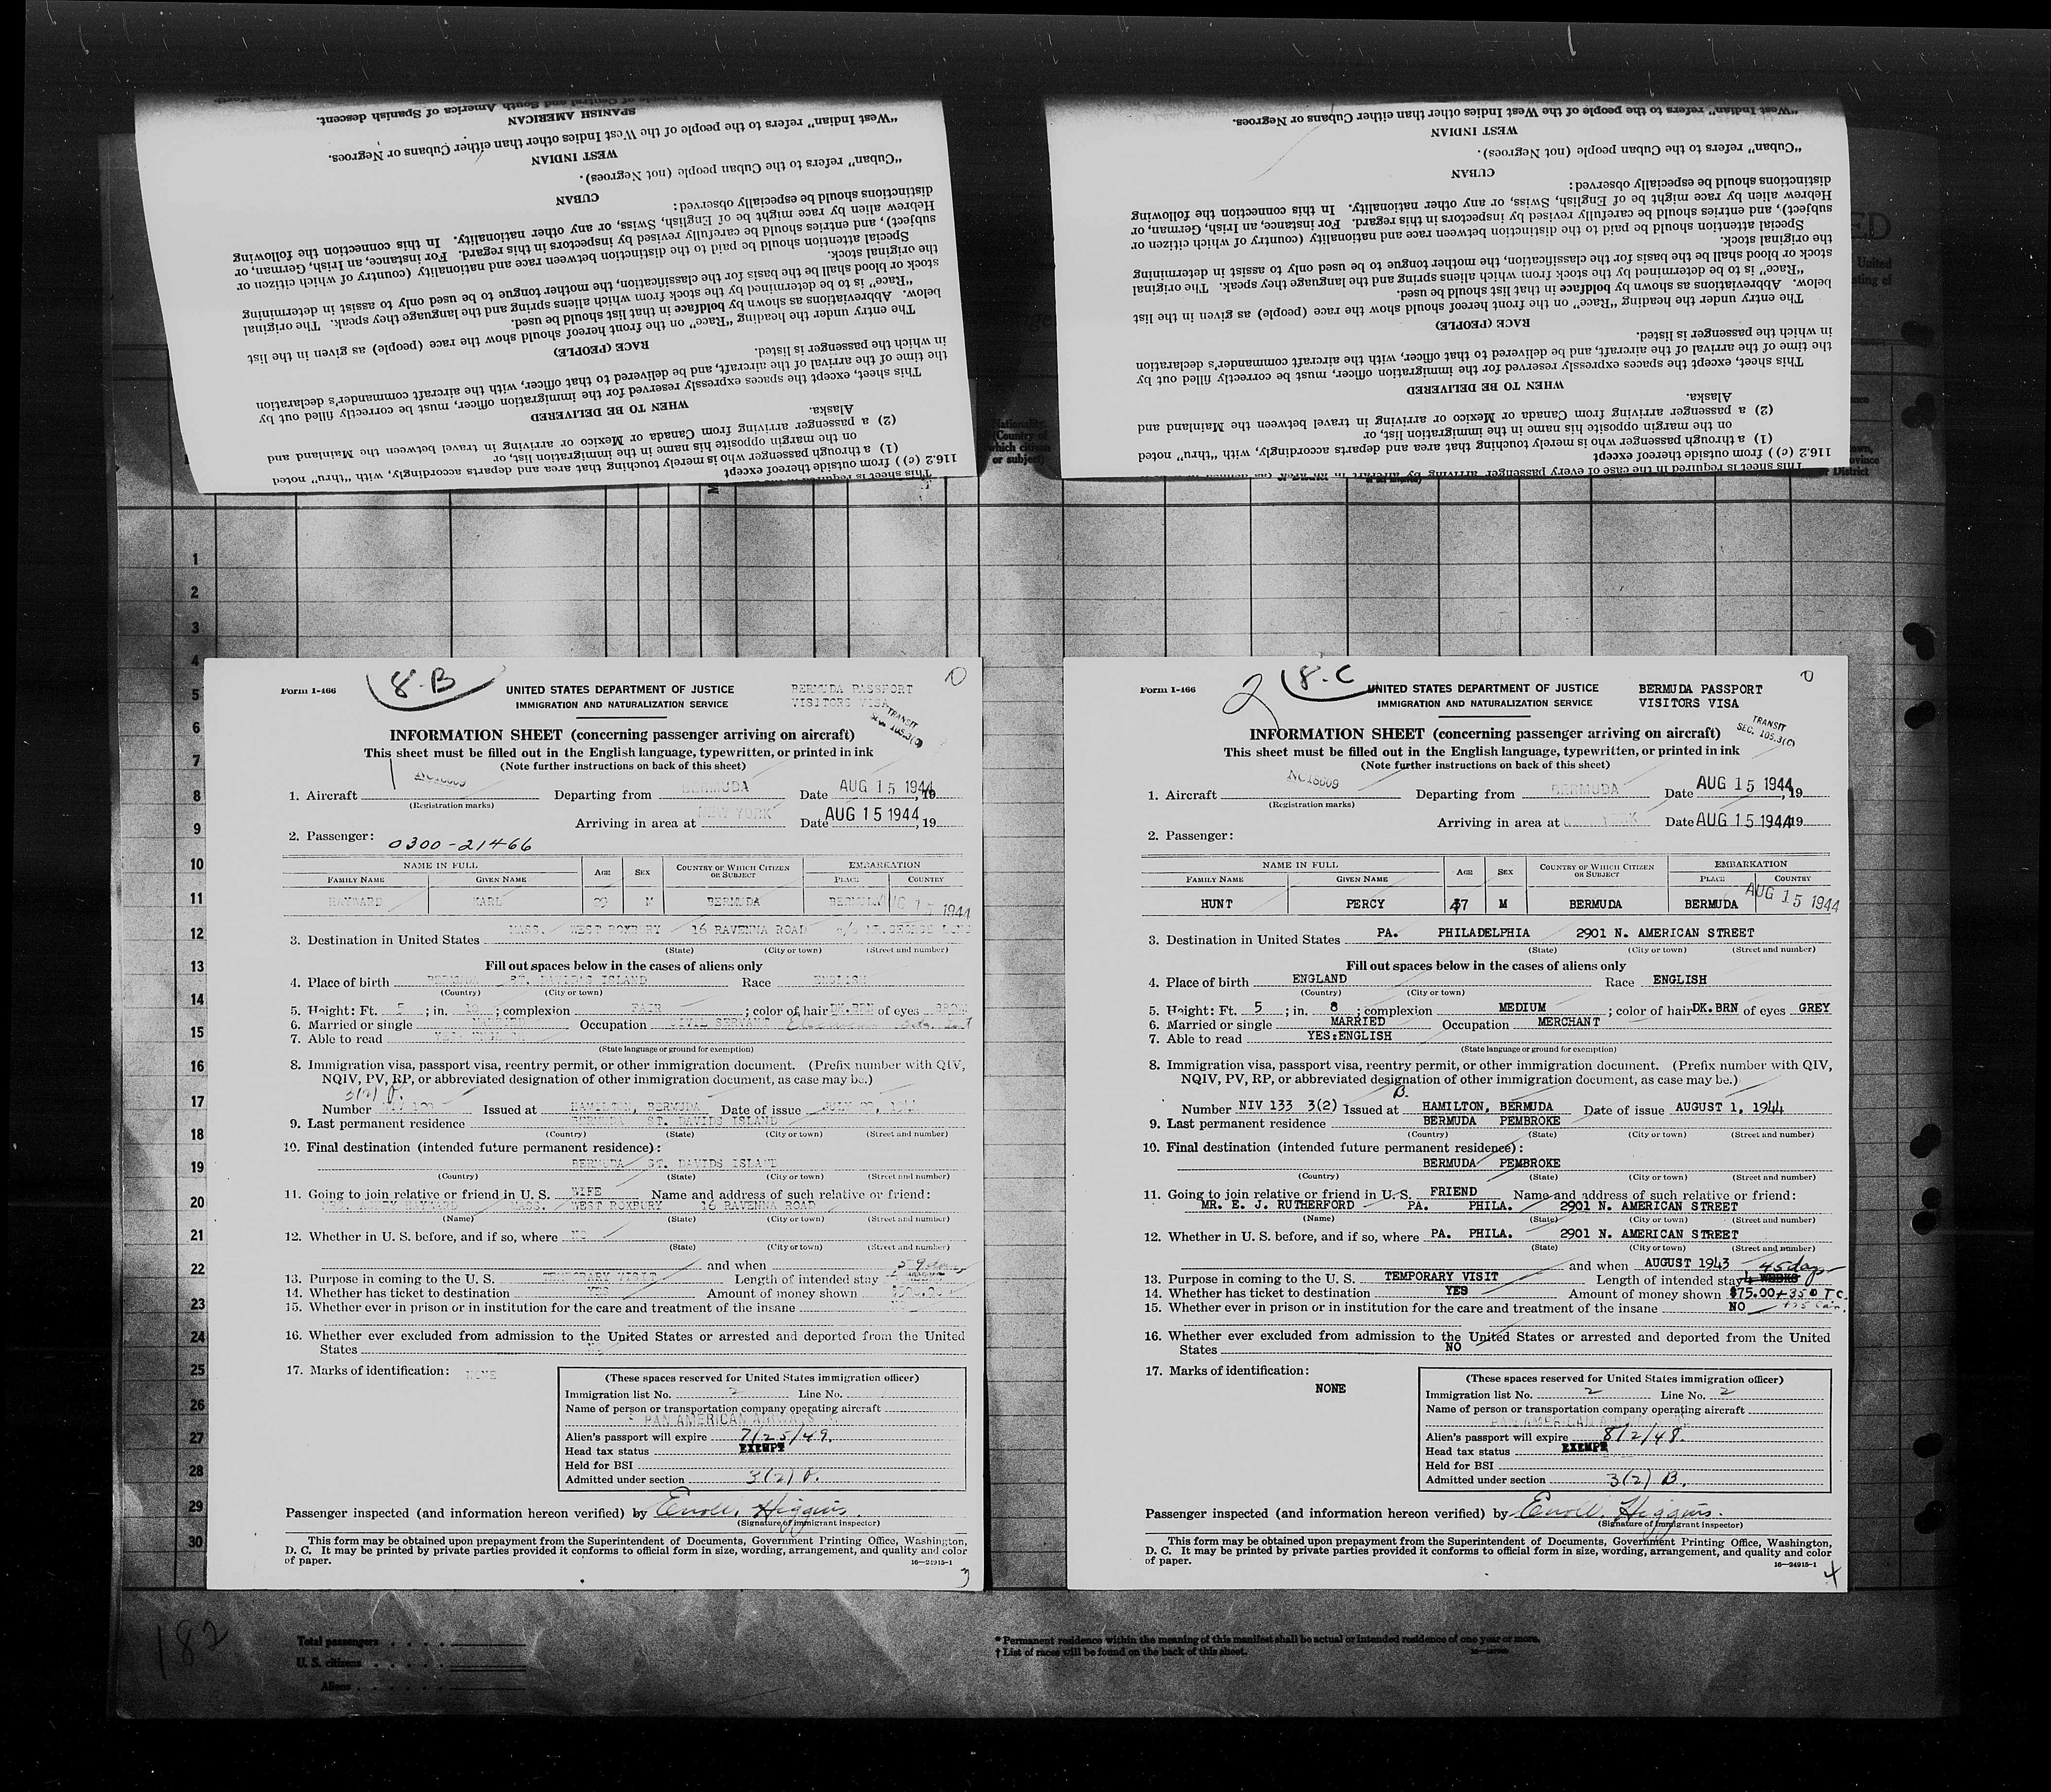 SPANISH AMERICAN
"West Indian" refers to the people of the West Indies other than either Cubans or Negroes.
WEST INDIAN
"Cuban" refers to the Cuban people (not Negroes).
CUBAN
distinctions should be especially observed:
Hebrew alien by race might be of English, Swiss, or any other nationality. In this connection the following
subject), and entries should be carefully revised by inspectors in this regard. For instance, an Irish, German, or
Special attention should be paid to the distinction between race and nationality (country of which citizen or
the original stock.
stock or blood shall be the basis for the classification, the mother tongue to be used only to assist in determining
"Race" is to be determined by the stock from which aliens spring and the language they speak. The original
below. Abbreviations as shown by boldface in that list should be used.
The entry under the heading "Race" on the front hereof should show the race (people) as given in the list
RACE (PEOPLE)
in which the passenger is listed.
the time of the arrival of the aircraft, and be delivered to that officer, with the aircraft commander's declaration
This sheet, except the spaces expressly reserved for the immigration officer, must be correctly filled out by
WHEN TO BE DELIVERED
Alaska.
(2) a passenger arriving from Canada or Mexico or arriving in travel between the Mainland and
on the margin opposite his name in the immigration list, or
(1) a through passenger who is merely touching that area and departs accordingly, with "thru" noted
116.2 (c)) from outside thereof except
"West Indian" refers to the people of the West Indies other than either Cubans or Negroes.
WEST INDIAN
"Cuban" refers to the Cuban people (not Negroes).
CUBAN
distinctions should be especially observed:
Hebrew alien by race might be of English, Swiss, or any other nationality. In this connection the following
subject), and entries should be carefully revised by inspectors in this regard. For instance, an Irish, German, or
Special attention should be paid to the distinction between race and nationality (country of which citizen or
the original stock.
stock or blood shall be the basis for the classification, the mother tongue to be used only to assist in determining
"Race" is to be determined by the stock from which aliens spring and the language they speak. The original
below. Abbreviations as shown by boldface in that list should be used.
The entry under the heading "Race" on the front hereof should show the race (people) as given in the list
RACE (PEOPLE)
in which the passenger is listed.
the time of the arrival of the aircraft, and be delivered to that officer, with the aircraft commander's declaration
This sheet, except the spaces expressly reserved for the immigration officer, must be correctly filled out by
WHEN TO BE DELIVERED
Alaska.
(2) a passenger arriving from Canada or Mexico or arriving in travel between the Mainland and
on the margin opposite his name in the immigration list, or
(1) a through passenger who is merely touching that area and departs accordingly, with "thru" noted
116.2 (c)) from outside thereof except
Form I-466 8-B UNITED STATES DEPARTMENT OF JUSTICE BERMUDA PASSPORT 0
IMMIGRATION AND NATURALIZATION SERVICE VISITORS VISA
TRANSIT
SEC. 105.3(C)
INFORMATION SHEET (concerning passenger arriving on aircraft)
This sheet must be filled out in the English language, typewritten, or printed in ink
(Note further instructions on back of this sheet)
1. Aircraft NC18609 Departing from BERMUDA Date AUG 15 1944, 19
(Registration marks)
Arriving in area at NEW YORK Date AUG 15 1944, 19
2. Passenger: 0300-21466
NAME IN FULL AGE SEX COUNTRY OF WHICH CITIZEN OR SUBJECT EMBARKATION
FAMILY NAME GIVEN NAME PLACE COUNTRY
HAYWARD KARL M BERMUDA BERMUDA AUG 15 1944
3. Destination in United States MASS. WEST ROXBURY 16 RAVENNA ROAD c/o MR. GEORGE
(State) (City or town) (Street and number)
Fill out spaces below in the cases of aliens only
4. Place of birth BERMUDA ST. DAVIDS ISLAND Race ENGLISH
(Country) (City or town)
5. Height: Ft. 5; in. 10; complexion FAIR; color of hair DK.BRN of eyes
6. Married or single MARRIED Occupation CIVIL SERVANT
7. Able to read YES: ENGLISH
(State language or ground for exemption)
8. Immigration visa, passport visa, reentry permit, or other immigration document. (Prefix number with QIV,
NQIV, PV, RP, or abbreviated designation of other immigration document, as case may be.)
3(2)
Number Issued at HAMILTON, BERMUDA Date of issue JULY
9. Last permanent residence BERMUDA ST. DAVIDS ISLAND
(Country) (State) (City or town) (Street and number)
10. Final destination (intended future permanent residence):
BERMUDA ST. DAVIDS ISLAND
(Country) (State) (City or town) (Street and number)
11. Going to join relative or friend in U. S. WIFE Name and address of such relative or friend:
MRS. HAYWARD MASS. WEST ROXBURY 16 RAVENNA ROAD
(Name) (State) (City or town) (Street and number)
12. Whether in U. S. before, and if so, where NO
(State) (City or town) (Street and number)
and when
13. Purpose in coming to the U. S. TEMPORARY VISIT Length of intended stay
14. Whether has ticket to destination YES Amount of money shown
15. Whether ever in prison or in institution for the care and treatment of the insane
16. Whether ever excluded from admission to the United States or arrested and deported from the United
States
17. Marks of identification: NONE
(These spaces reserved for United States immigration officer)
Immigration list No. 2 Line No.
Name of person or transportation company operating aircraft
PAN AMERICAN AIRWAYS
Alien's passport will expire 7/25/49.
Head tax status EXEMPT
Held for BSI
Admitted under section 3(2)
Passenger inspected (and information hereon verified) by Higgins.
(Signature of immigrant inspector)
This form may be obtained upon prepayment from the Superintendent of Documents, Government Printing Office, Washington,
D. C. It may be printed by private parties provided it conforms to official form in size, wording, arrangement, and quality and color
of paper. 16-24915-1
3
Form I-466 2 8-C UNITED STATES DEPARTMENT OF JUSTICE BERMUDA PASSPORT 0
IMMIGRATION AND NATURALIZATION SERVICE VISITORS VISA
TRANSIT
SEC. 105.3(C)
INFORMATION SHEET (concerning passenger arriving on aircraft)
This sheet must be filled out in the English language, typewritten, or printed in ink
(Note further instructions on back of this sheet)
1. Aircraft NC18609 Departing from BERMUDA Date AUG 15 1944, 19
(Registration marks)
Arriving in area at YORK Date AUG 15 1944 19
2. Passenger:
NAME IN FULL AGE SEX COUNTRY OF WHICH CITIZEN OR SUBJECT EMBARKATION
FAMILY NAME GIVEN NAME PLACE COUNTRY
HUNT PERCY 47 M BERMUDA BERMUDA AUG 15 1944
3. Destination in United States PA. PHILADELPHIA 2901 N. AMERICAN STREET
(State) (City or town) (Street and number)
Fill out spaces below in the cases of aliens only
4. Place of birth ENGLAND Race ENGLISH
(Country) (City or town)
5. Height: Ft. 5; in. 8; complexion MEDIUM; color of hair DK.BRN of eyes GREY
6. Married or single MARRIED Occupation MERCHANT
7. Able to read YES:ENGLISH
(State language or ground for exemption)
8. Immigration visa, passport visa, reentry permit, or other immigration document. (Prefix number with QIV,
NQIV, PV, RP, or abbreviated designation of other immigration document, as case may be.)
B.
Number NIV 133 3(2) Issued at HAMILTON, BERMUDA Date of issue AUGUST 1, 1944
9. Last permanent residence BERMUDA PEMBROKE
(Country) (State) (City or town) (Street and number)
10. Final destination (intended future permanent residence):
BERMUDA PEMBROKE
(Country) (State) (City or town) (Street and number)
11. Going to join relative or friend in U. S. FRIEND Name and address of such relative or friend:
MR. E. J. RUTHERFORD PA. PHILA. 2901 N. AMERICAN STREET
(Name) (State) (City or town) (Street and number)
12. Whether in U. S. before, and if so, where PA. PHILA. 2901 N. AMERICAN STREET
(State) (City or town) (Street and number)
and when AUGUST 1943
13. Purpose in coming to the U. S. TEMPORARY VISIT Length of intended stay 4 WEEKS 45 days
14. Whether has ticket to destination YES Amount of money shown $75.00+350 T C.
15. Whether ever in prison or in institution for the care and treatment of the insane NO
16. Whether ever excluded from admission to the United States or arrested and deported from the United
States NO
17. Marks of identification:
NONE
(These spaces reserved for United States immigration officer)
Immigration list No. 2 Line No. 2
Name of person or transportation company operating aircraft
PAN AMERICAN
Alien's passport will expire 8/2/48.
Head tax status EXEMPT
Held for BSI
Admitted under section 3(2) B.
Passenger inspected (and information hereon verified) by Higgins.
(Signature of immigrant inspector)
This form may be obtained upon prepayment from the Superintendent of Documents, Government Printing Office, Washington,
D. C. It may be printed by private parties provided it conforms to official form in size, wording, arrangement, and quality and color
of paper. 16-24915-1
4
Nationality.
(Country of
which citizen
or subject)
1
2
3
4
5
6
7
8
9
10
11
12
13
14
15
16
17
18
19
20
21
22
23
24
25
26
27
28
29
30
182
Total passengers
U. S. citizens
Aliens
* Permanent residence within the meaning of this manifest shall be actual or intended residence of one year or more.
† List of races will be found on the back of this sheet.